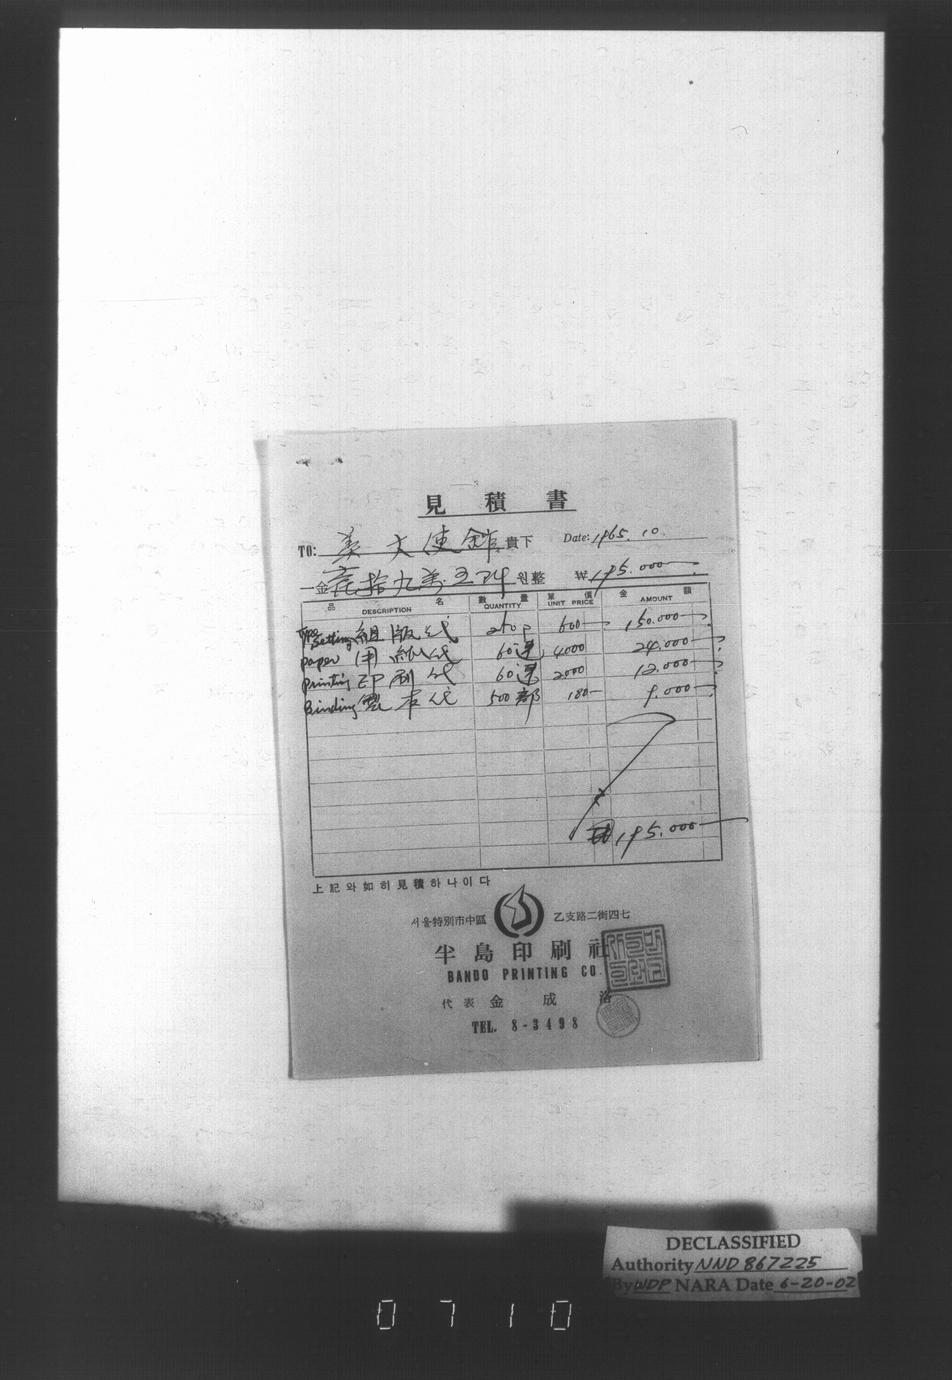 見積書
TO: 美大使館 貴下 Date: 1965. 10.
一金 壹拾九萬五阡 원整 ₩195.000-
品名 數量 單價 金額
DESCRIPTION QUANTITY UNIT PRICE AMOUNT
Type Setting 組版代 250p 600- 150.000-
paper 用紙代 60連 4000 24.000-
printing 印刷代 60連 2000 12.000-
Binding 製本代 500部 180- 9.000-
195.000-
上記와如히見積하나이다
서울特別市中區 乙支路二街四七
半島印刷社
BANDO PRINTING CO.
代表 金成洛
TEL. 8-3498
DECLASSIFIED
Authority NND 867225
By WDP NARA Date 6-20-02
0710